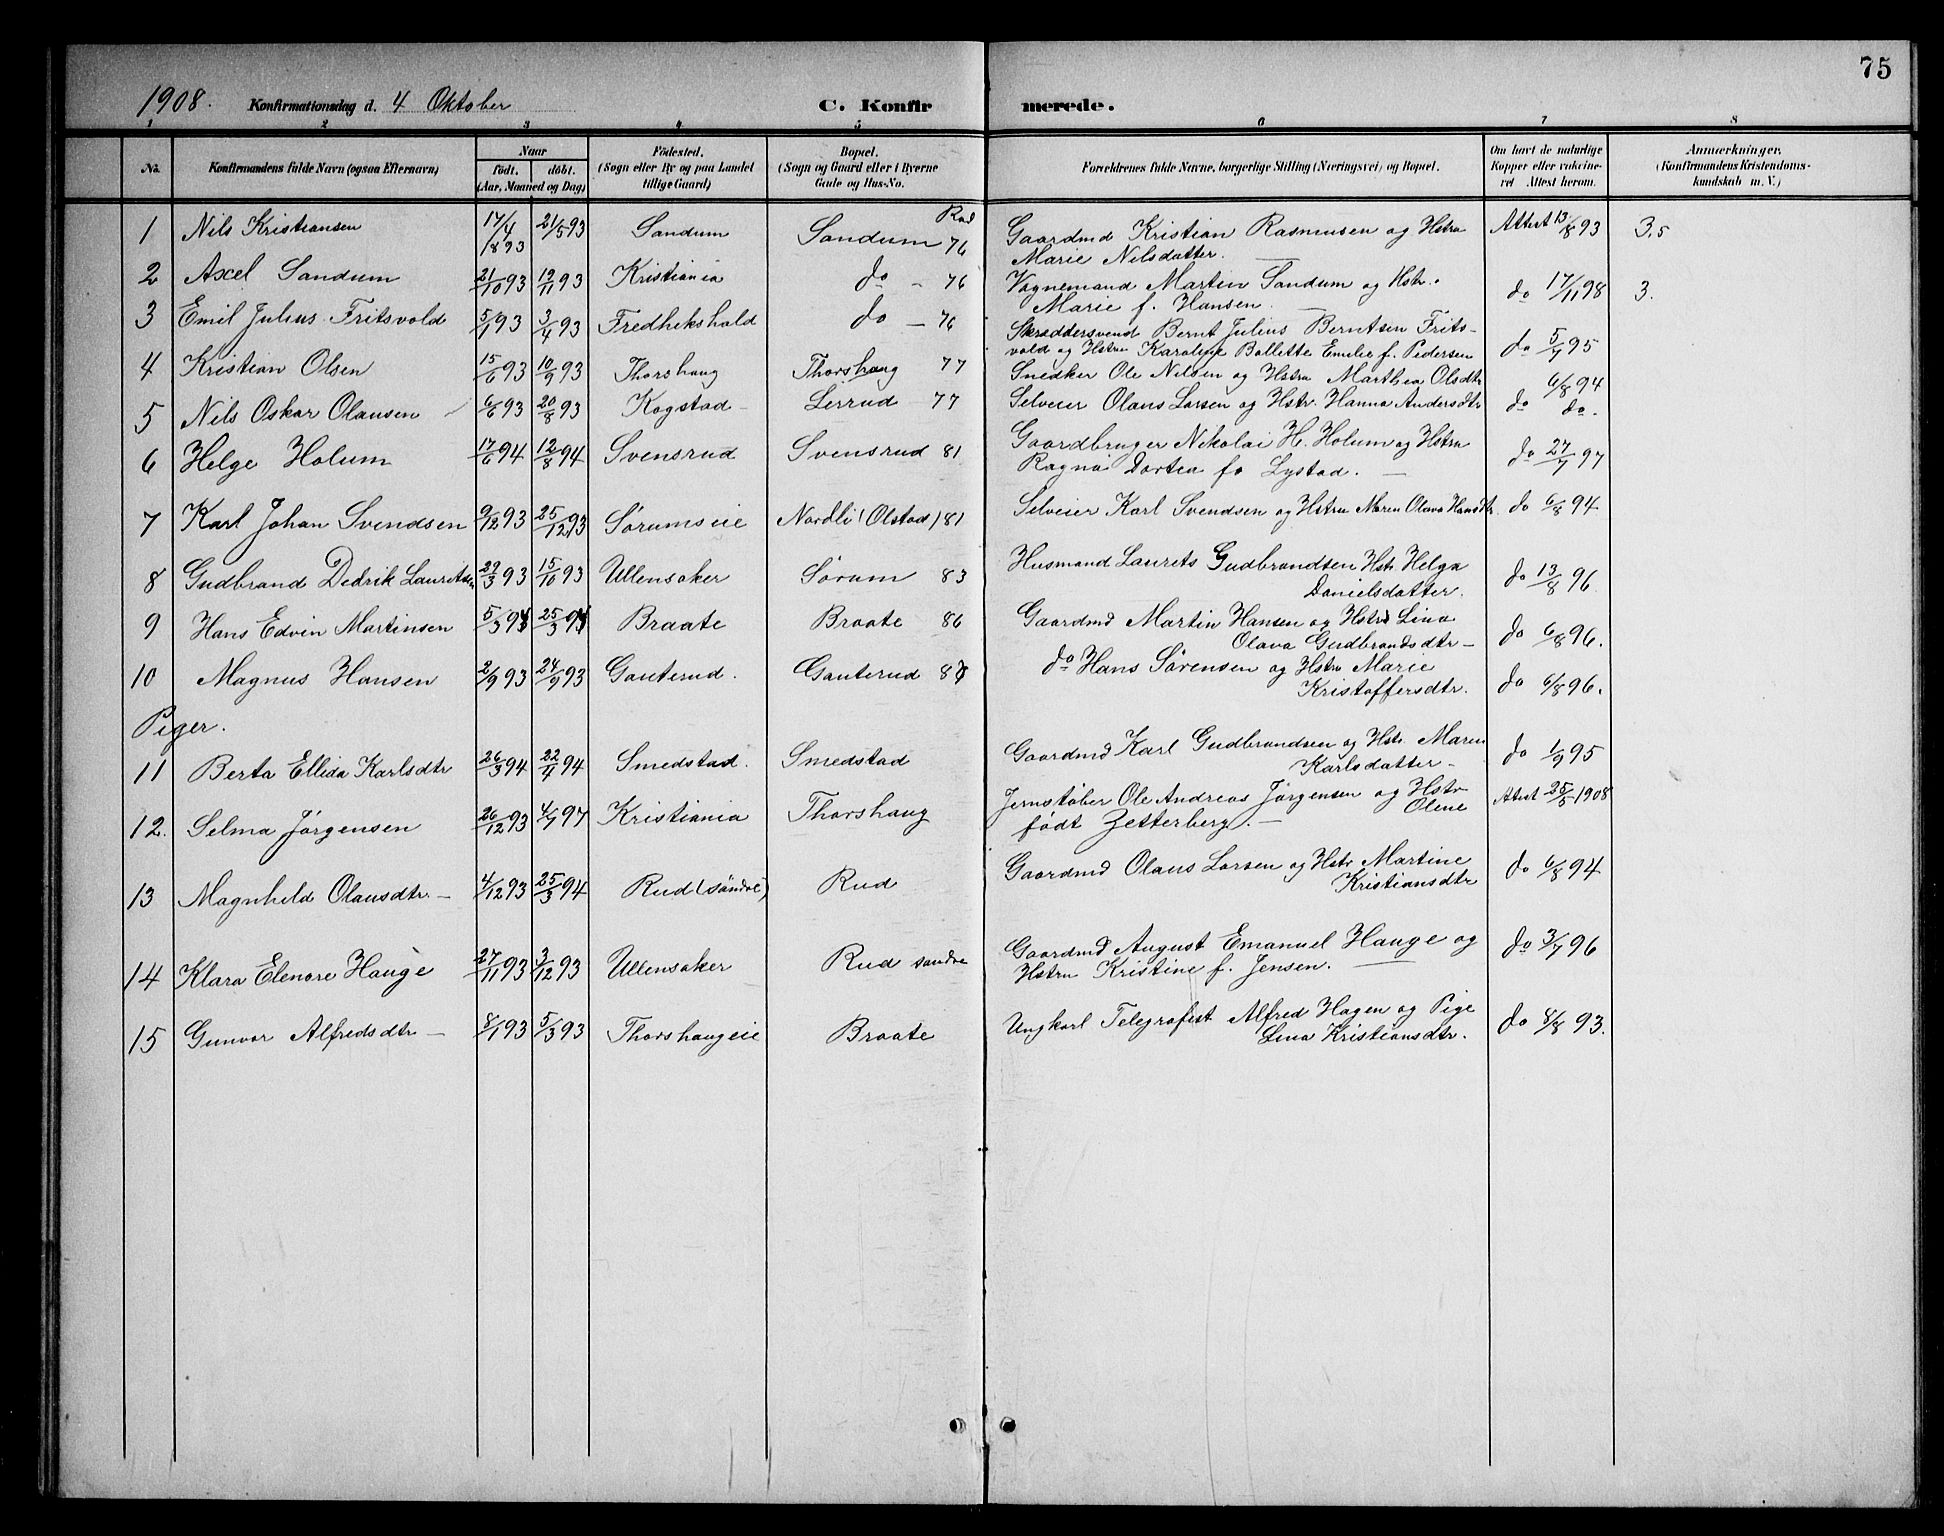 75
1908. Konfirmationsdag d. 4 Oktober C. Konfirmerede.
1 2 3 4 5 6 7 8
No. Konfirmandens fulde Navn (ogsaa Efternavn) Naar født. døbt. (Aar, Maaned og Dag) Fødested. (Sogn eller By og paa Landet tillige Gaard) Bopæl. (Sogn og Gaard eller i Byerne Gade og Hus-No. Forældrenes fulde Navne, borgerlige Stilling (Næringsvei) og Bopæl. Om havt de naturlige Kopper eller vakcineret Attest herom. Anmærkninger. (Konfirmandens Kristendomskundskab m. V.)
1 Nils Kristiansen 17/4 1893 21/5 93 Sandum Sandum 76 Gaardmd Kristian Rasmussen og Hstru Attest 13/8 93 3,5
Marie Nilsdatter.
2 Axel Sandum 21/10 93 12/11 93 Kristiania do - 76 Vognemand Martin Sandum og Hstr. do 17/11 98 3.
Marie f. Hansen.
3 Emil Julius Fritsvold 5/1 93 3/4 93 Fredrikshald do - 76 Skræddersvend Bernt Julius Berntsen Frits-
vold og Hstru Karoline Bollette Emilie f. Pedersen do 5/7 95
4 Kristian Olsen 15/6 93 10/9 93 Thorshaug Thorshaug 77 Snedker Ole Nilsen og Hstru Marthea Olsdtr do 6/8 94
5 Nils Oskar Olausen 6/6 93 20/8 93 Kogstad Lerrud 77 Selveier Olaus Larsen og Hstr. Hanna Andersdtr do.
6 Helge Holum 17/6 94 12/8 94 Svensrud Svensrud 81 Gaardbruger Nikolai H. Holum og Hstru do 27/7 97
Ragna Dortea fø Lystad.
7 Karl Johan Svendsen 9/12 93 25/12 93 Sørumseie Nordli (Olstad) 81 Selveier Karl Svendsen og Hstru Maren Olava Hansdtr. do 6/8 94
8 Gudbrand Dedrik Lauretsen 29/3 93 15/10 93 Ullensaker Sørum 83 Husmand Laurets Gudbrandsen Hstr. Helga do 13/8 96
Danielsdatter.
9 Hans Edvin Martinsen 5/3 25/3 Braate Braate 86 Gaardmd Martin Hansen og Hstr Lina
Olava Gudbrandsdtr - do 6/8 96.
10 Magnus Hansen 2/9 93 24/9 93 Gauterud. Gauterud do Hans Sørensen og Hstru Marie
Kristoffersdtr. do 6/8 96.
Piger.
11 Berta Ellida Karlsdtr 26/3 94 22/4 94 Smedstad. Smedstad Gaardmd Karl Gudbrandsen og Hstr. Maren do 1/9 95
Karlsdatter -
12. Selma Jørgensen 26/12 93 4/7 97 Kristiania Thorshaug Jernstøber Ole Andreas Jørgensen og Hstr Olene Attest 25/5 1908
født Zetterberg. -
13 Magnhild Olausdtr. - 4/12 93 25/3 94 Rud (søndre) Rud Gaardmd Olaus Larsen og Hstr Martine do 6/8 94
Kristiansdtr
14 Klara Elenore Hauge 27/11 93 3/12 93 Ullensaker Rud søndre Gaardmd August Emanuel Hauge og do 3/7 96
Hstru Kristine f. Jensen.
15 Gunvor Alfredsdtr - 8/1 93 5/3 93 Thorshaugeie Braate Ungkarl Telegrafist Alfred Hagen og Pige do 8/8 93.
Lina Kristiansdtr.